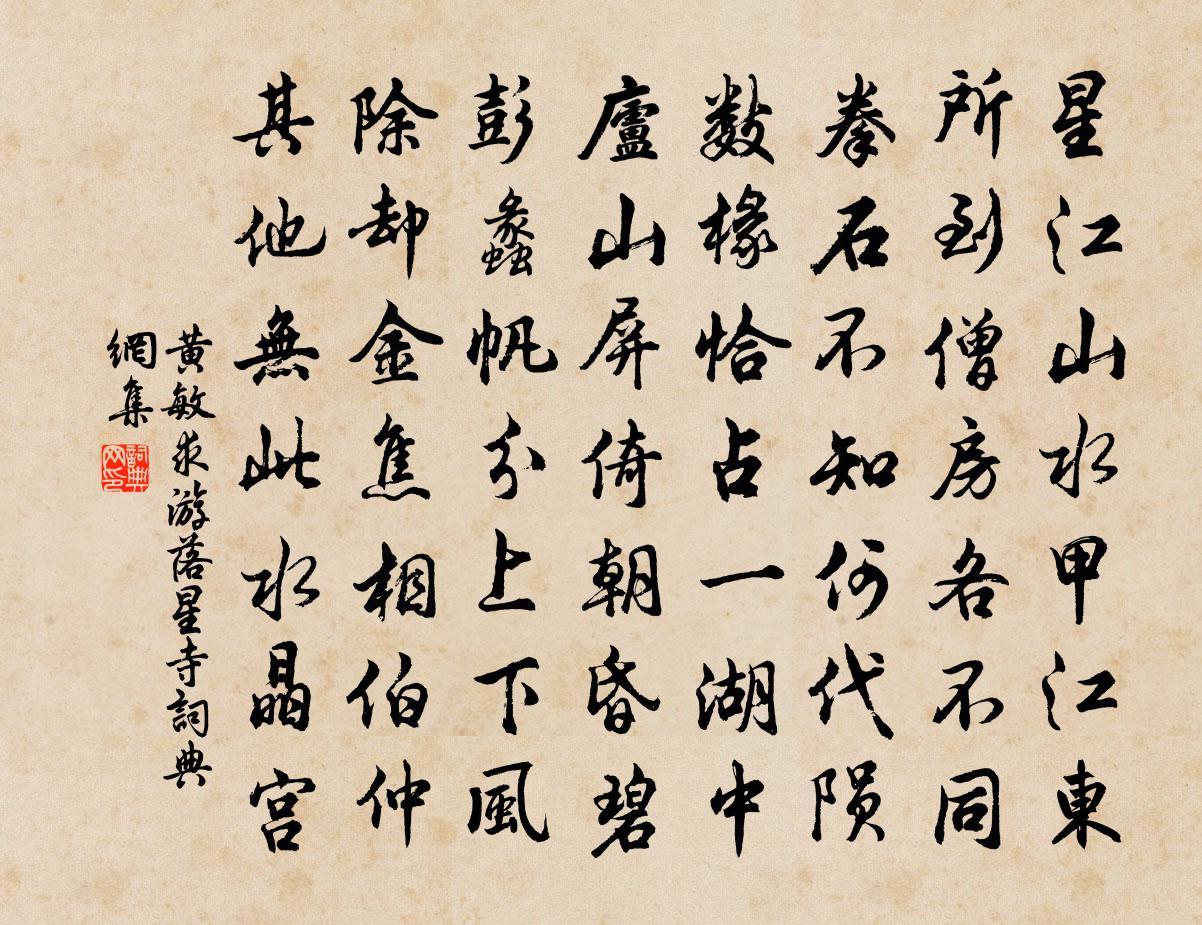 星江山水甲江東
所到僧房各不同
拳石不知何代隕
數椽恰占一湖中
廬山屏倚朝昏碧
彭蠡帆分上下風
除却金焦相伯仲
其他無此水晶宮
黄敏求游落星寺詞典
網集
詞典
网印